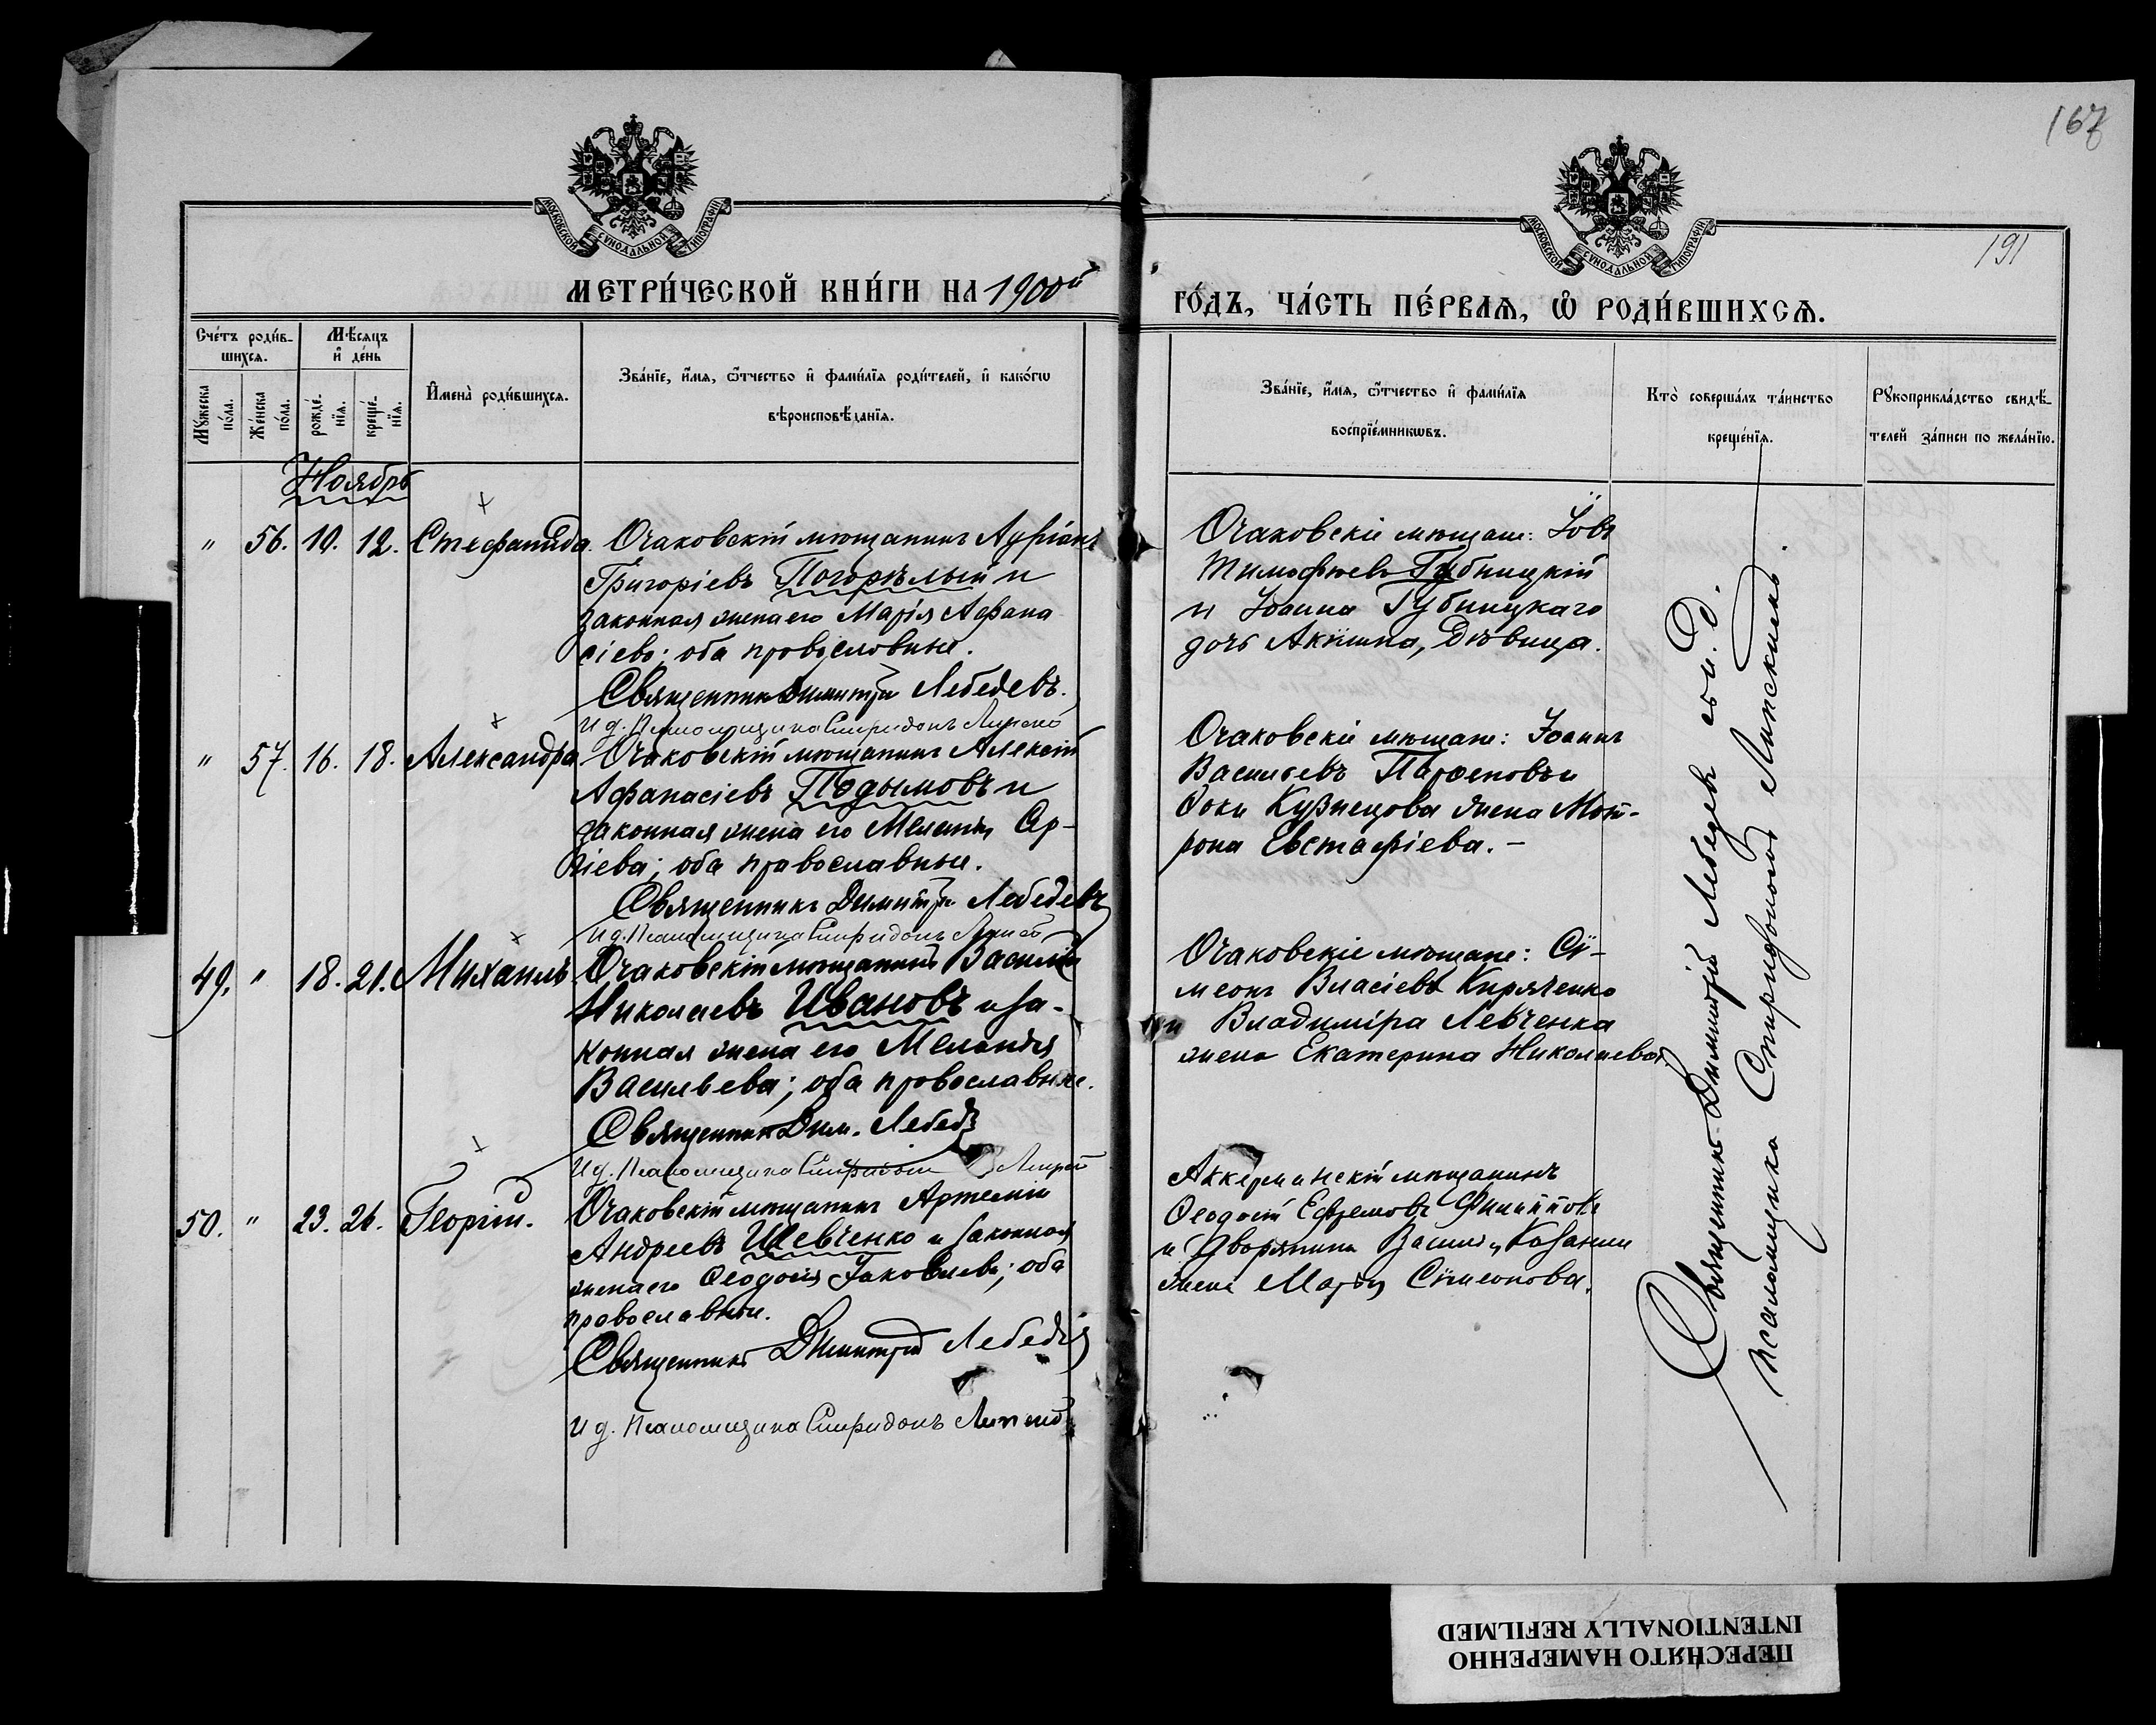 167
191
МОСКОВСКОЙ СѴНОДАЛЬНОЙ ТИПОГРАФІИ
МОСКОВСКОЙ СѴНОДАЛЬНОЙ ТИПОГРАФІИ
МЕТРИ́ЧЕСКОЙ КНИ́ГИ НА 1900й
ГО́ДЪ, ЧА́СТЬ ПЕ́РВАѦ, Ѡ РОДИ́ВШИХСѦ.
Сче́тъ роди́в-
шихсѧ.
Мꙋ́жеска
по́ла.
Же́нска
по́ла.
Мѣ́сѧцъ
и҆ де́нь
рожде́-
нїѧ.
креще́-
нїѧ.
И҆мена̀ роди́вшихсѧ.
Зва́нїе, и҆́мѧ, ѻ҆́тчество и҆ фами́лїѧ роди́телей, и҆ како́гѡ
вѣроисповѣ́данїѧ.
Зва́нїе, и҆́мѧ, ѻ҆́тчество и҆ фами́лїѧ
воспрїе́мникѡвъ.
Кто̀ соверша́лъ та́инство
креще́нїѧ.
Рꙋкоприкла́дство свидѣ́-
телей за́писи по жела́нїю.
Ноябрь
" 56. 10. 12. Стефанида.
Очаковскій мѣщанинъ Андріанъ
Григоріевъ Погорѣлый и
законная жена его Марія Афана
сіева; оба православные.
Священникъ Димитрій Лебедевъ.
И д. Псаломщика Спиридонъ Липскій
Очаковскіе мѣщане: Іовъ
Тимофѣевъ Губницкій
и Іоанна Губницкаго
дочь Акилина, дѣвица.
" 57. 16. 18. Александра
Очаковскій мѣщанинъ Алексій
Афанасіевъ Подымовъ и
законная жена его Меланія Ар-
оба православные.
Священникъ Димитрій Лебедевъ
И д. Псаломщика Спиридонъ Липскій
Очаковскіе мѣщане: Іоаннъ
Васильевъ Парѳеновъ и
Ѳоки Кузнецова жена Мат-
рона Евстафіева. –
49. " 18. 21. Михаилъ
Очаковскій мѣщанинъ Василій
Николаевъ Ивановъ и за-
конная жена его Меланія
Васильева; оба православные.
Священникъ Дим. Лебед
И д. Псаломщика Спиридонъ Липскій
Очаковскіе мѣщане: Сѵ-
меонъ Власіевъ Кириченко
и Владиміра Левченка
жена Екатерина Николаева
50. " 23. 26. Георгій.
Очаковскій мѣщанинъ Артемій
Андреевъ Шевченко и законная
жена его Ѳеодосія Іаковлева; оба
православные.
Священникъ Димитрій Лебедевъ
И д. Псаломщика Спиридонъ Липскій
Аккерманскій мѣщанинъ
Ѳеодосій Ефремовъ Филипповъ
и Дворянина Василія
жена Марія Сѵмеонова.
Священникъ Димитрій Лебедевъ съ и. д.
псаломщика Спиридономъ Липскимъ.
ПЕРЕСНЯТО НАМЕРЕННО
INTENTIONALLY REFILMED